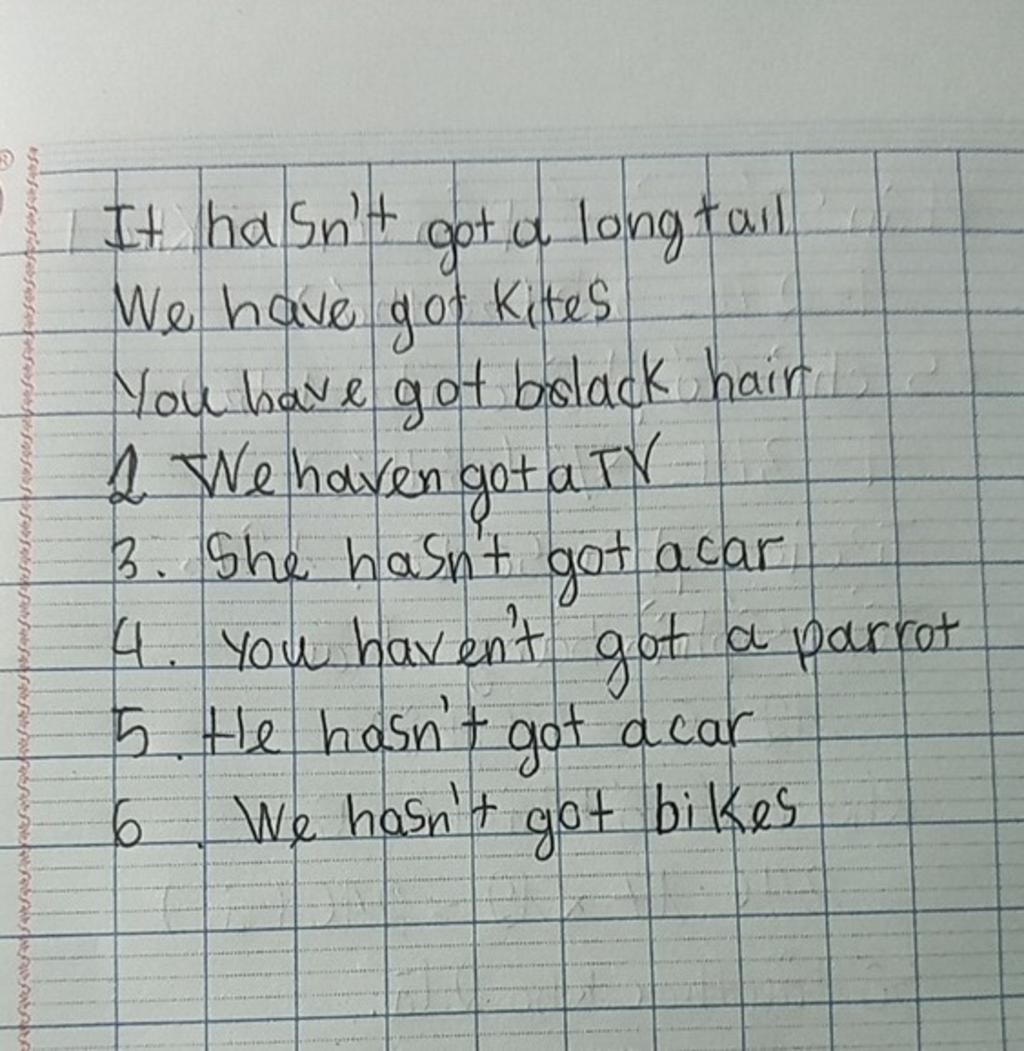 It hasn't got a long tail
We have got kites
You have got bslack hair
2 We haven got a TV
3. She hasn't got a car
4. You haven't got a parrot
5. He hasn't got a car
6. We hasn't got bikes